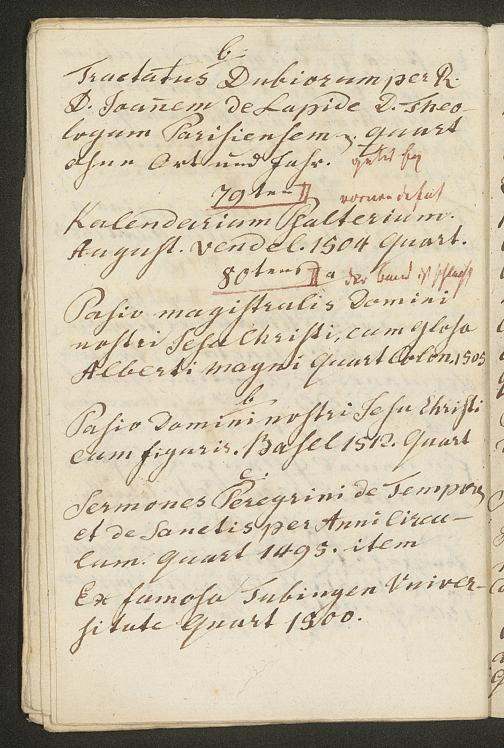 b.
Tractatus Dubiorum per R.
D. Joan̄em de Lapide D. Theo-
logum Parisiensem. quart
ohne Ort und Jahr.
79tens
Kalendarium Psalterium.
August. Vendel. 1504 Quart.
80tens a der band ist
Pasio magistralis Domini
nostri Jesu Christi, cum glosa
Alberti magni Quart Colon. 1505
b
Pasio Domini nostri Jesu Christi
cum figuris. Basel 1512. Quart
c.
Sermones Peregrini de Tempore
et de Sanctis per Anni Circu-
lum. Quart 1495. item
Ex famosa Tubingen Univer-
sitate Quart 1500.